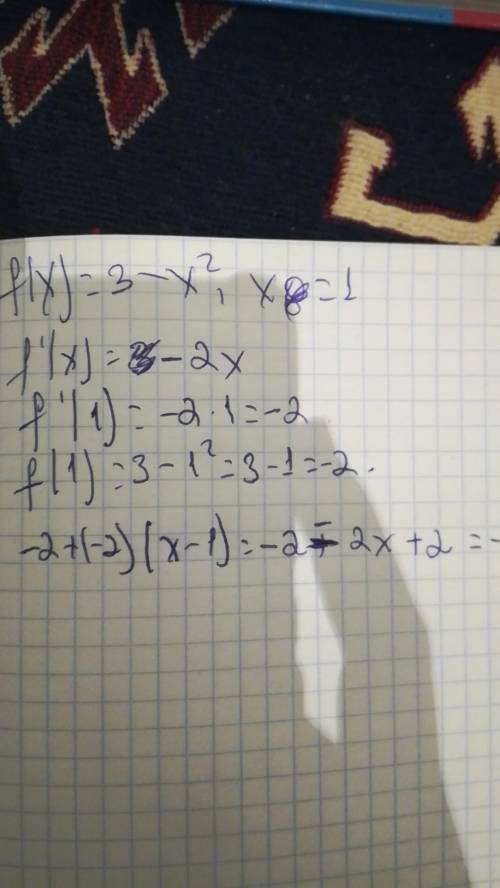 f(x) = 3 - x², x₀ = 1
f'(x) = - 2x
f'(1) = -2 · 1 = -2
f(1) = 3 - 1² = 3 - 1 = -2.
-2 + (-2)(x - 1) = -2 - 2x + 2 = -